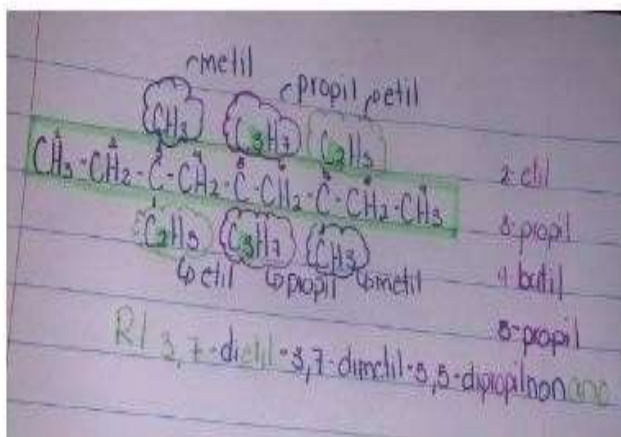 metil
propil etil
CH3 C3H7 C2H5
1 2 3 4 5 6 7 8 9
CH3-CH2-C-CH2-C-CH2-C-CH2-CH3
C2H5 C3H7 CH3
↳etil ↳propil ↳metil
2-etil
3-propil
4 butil
5-propil
R/ 3,7-dietil-3,7-dimetil-5,5-dipropilnonano